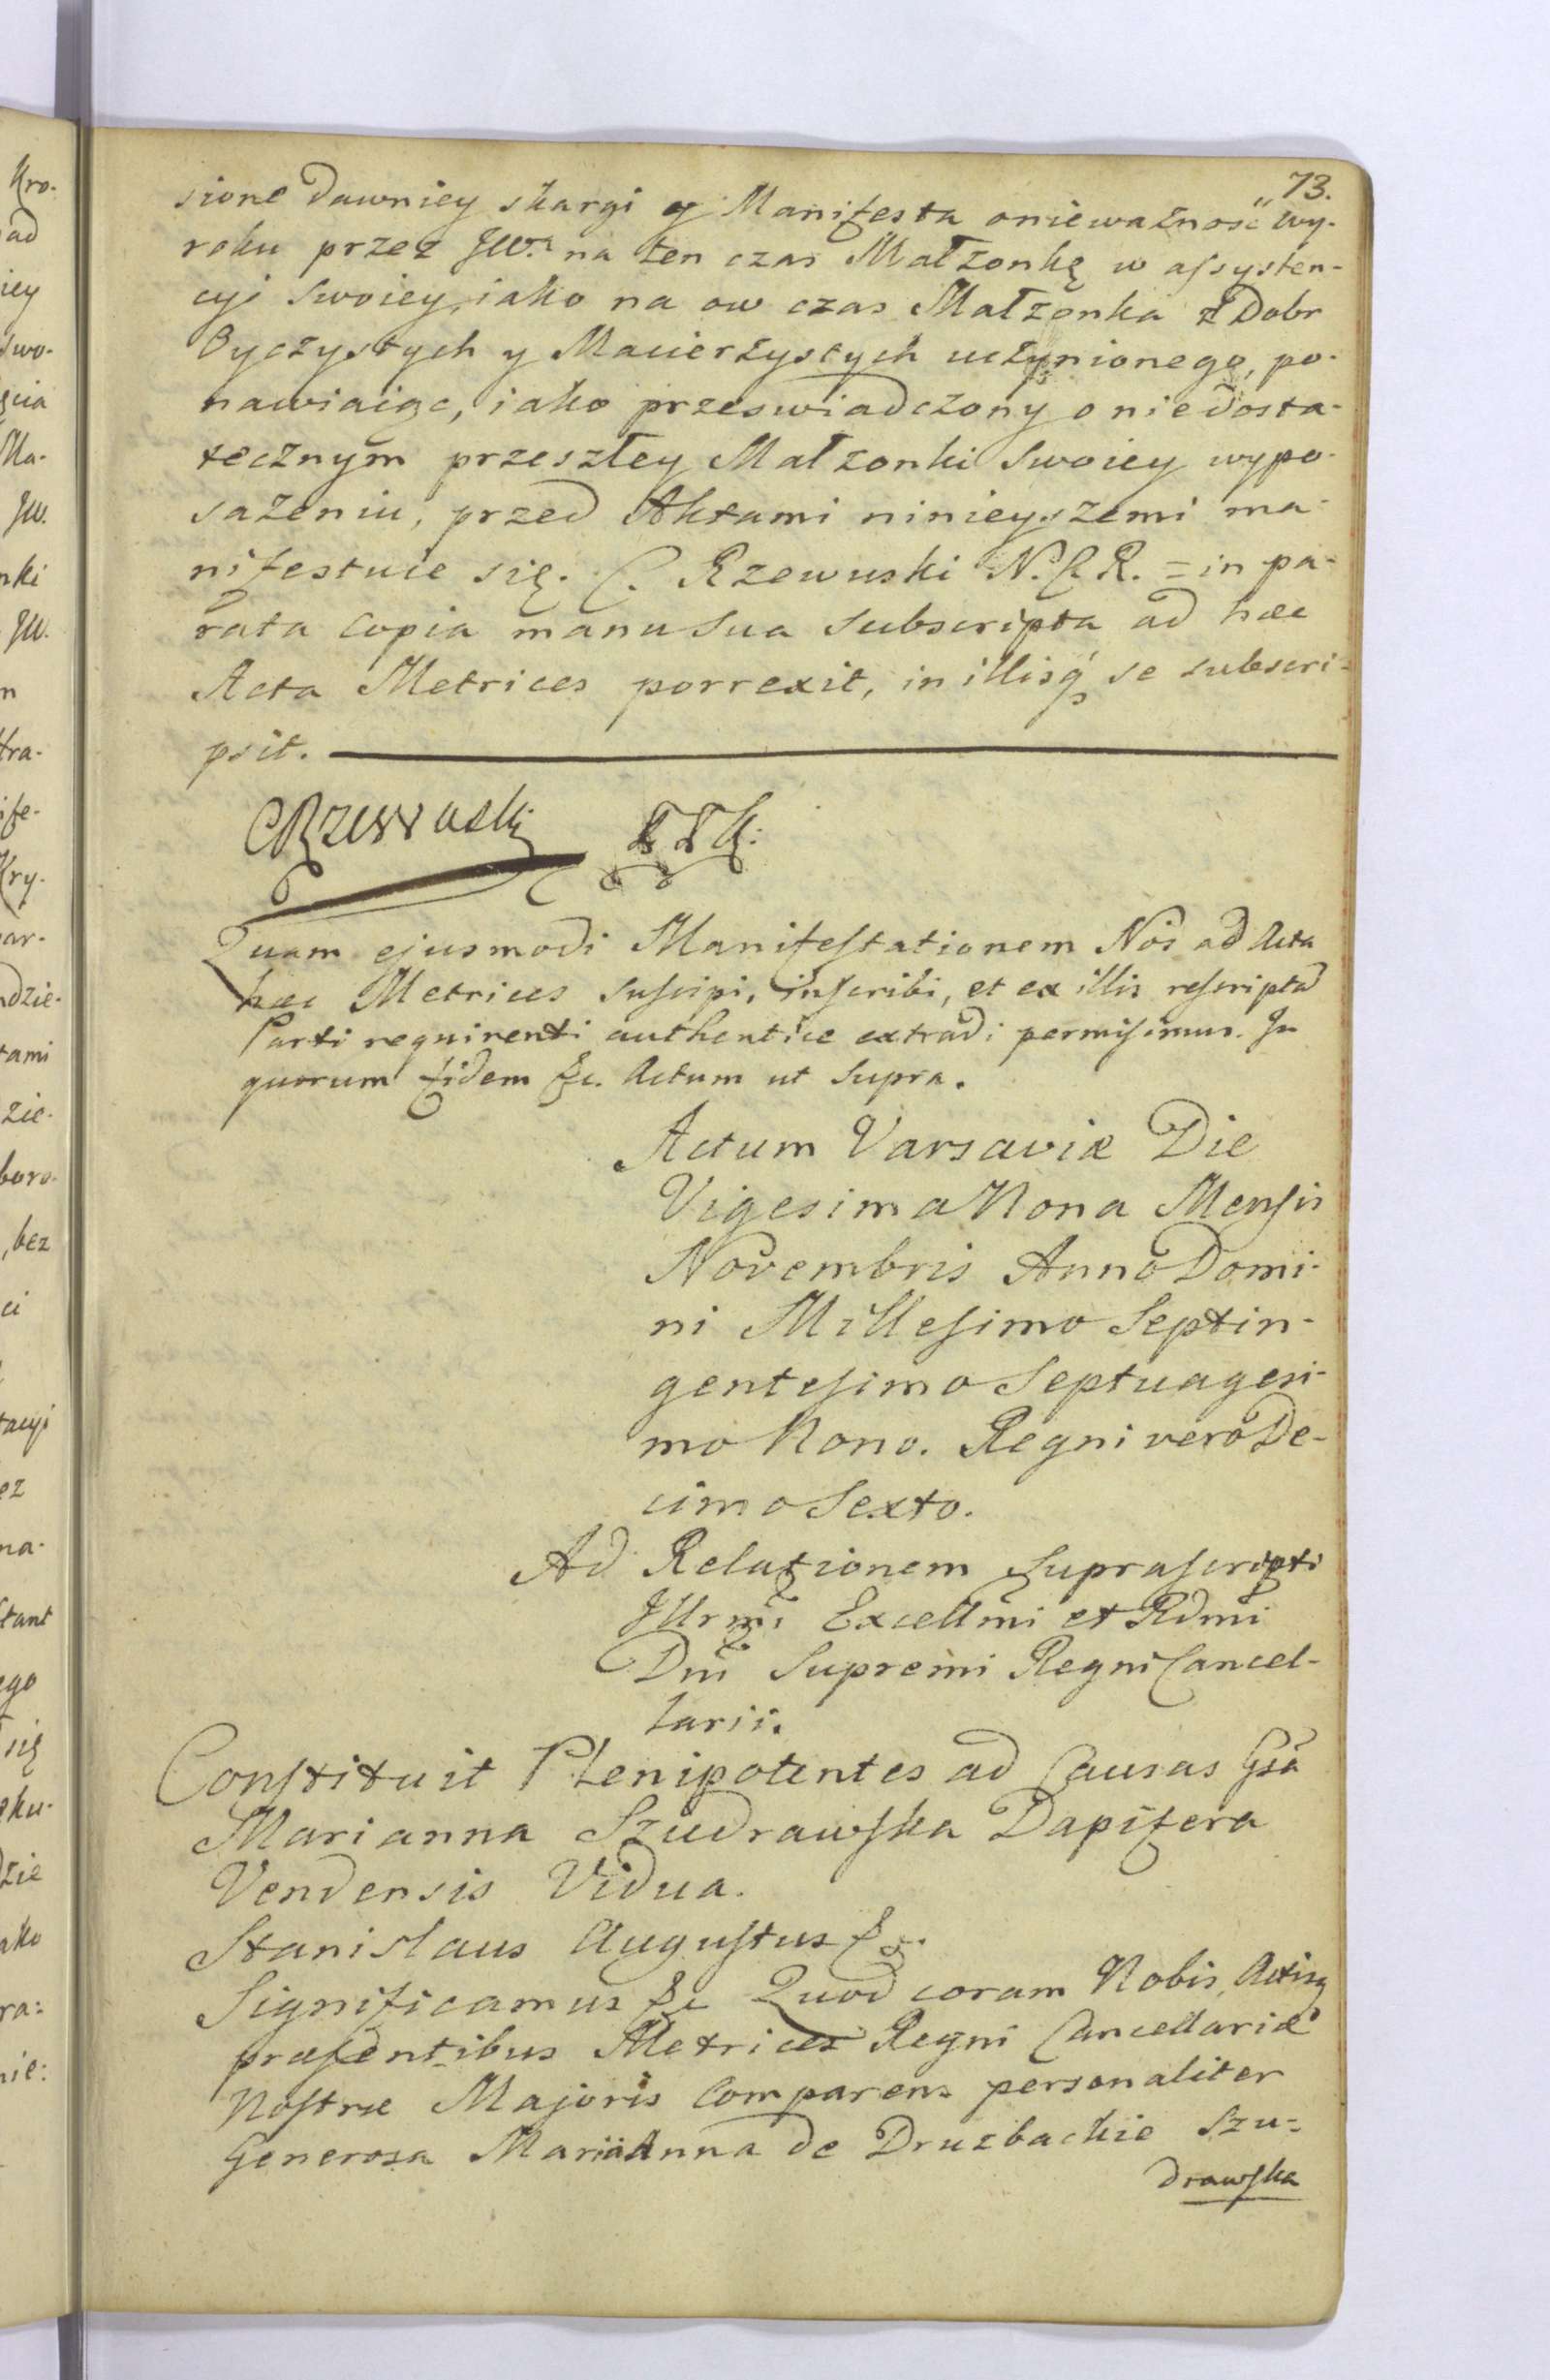 73.
sione dawniey skargi y Manifesta o nieważność wy-
roku przez JW. na ten czas Małżonkę w assysten-
cyi swoiey, iako na ow czas Małżonka z Dobr
Oyczystych y Macierzystych uczynionego, po-
nawiaiąc, iako przeswiadczony o niedosta-
tecznym przeszłey Małzonki swoiey wypo-
sażeniu, przed Aktami ninieyszemi ma-
nifestuie się. C. Rzewuski N. C. R. = in pa-
rata Copia manu sua subscripta ad hæc
Acta Metrices porrexit, in illisq́ se subscri-
psit.
CRzewuski
Quam ejusmodi Manifestationem Nos ad Acta
hæc Metrices suscipi, inscribi, et ex illis rescriptū
Parti requirenti authentice extradi permisimus. In
quorum fidem &c. Actum ut supra.
Actum Varsaviæ Die
Vigesima Nona Mensis
Novembris Anno Domi-
ni Millesimo Septin-
gentesimo Septuagesi-
mo Nono. Regni vero De-
cimo Sexto.
Ad Relationem suprascripti
Illrmi Excellmi et Rdmi
Dni Supremi Regni Cancel-
larii.
Constituit Plenipotentes ad Causas Gsa
Marianna Szudrawska Dapifera
Vendensis Vidua.
Stanislaus Augustus &c.
Significamus &c Quod coram Nobis, Actisq
præsentibus Metrices Regni Cancellariæ
Nostræ Majoris Comparens personaliter
Generosa Marianna de Druzbackie Szu=
drawska